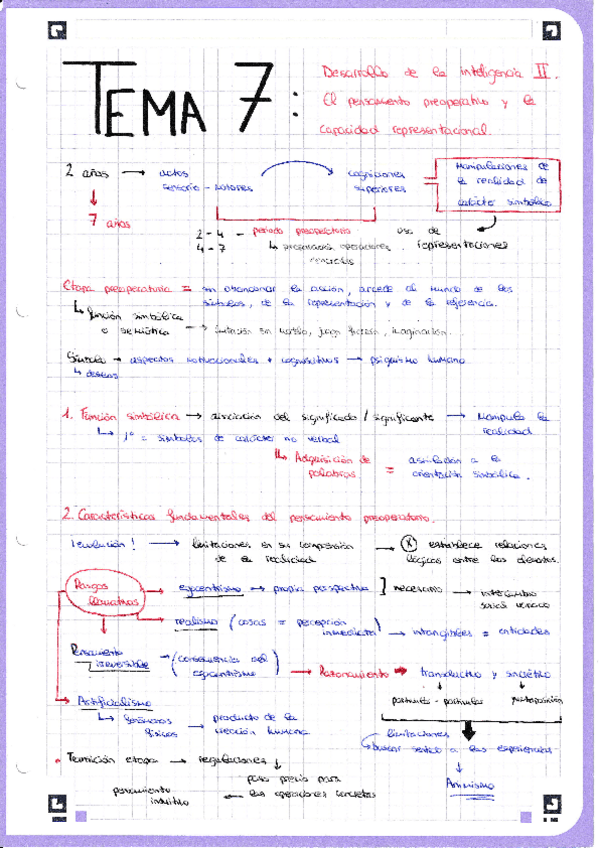 TEMA 7:
Desarrollo de la inteligencia II.
El pensamiento preoperativo y la
capacidad representacional.
2 años → actos sensorio-motores
cogniciones superiores
Manipulaciones de
la realidad de
carácter simbólico
7 años
2-4 - periodo preoperatorio
4-7
uso de
representaciones
Etapa preoperatoria = sin abandonar la acción, accede al mundo de los
símbolos, de la representación y de la referencia.
↳ función simbólica
o semiótica → imitación sin modelo, juego ficción, imaginación...
→ aspectos motivacionales + cognoscitivos → psiquismo humano
↳ deseos
1. Función simbólica → disociación del significado / significante → Manipula la
realidad
↳ 1º = símbolos de carácter no verbal
↳ Adquisición de
palabras = asimilación a la
orientación simbólica.
2. Características fundamentales del pensamiento preoperatorio.
¡evolución! → limitaciones en su comprensión
de la realidad → (x) establece relaciones
lógicas entre los
Rasgos
llamativos
egocentrismo → propia perspectiva ] necesario → intercambio
social
realismo (cosas = percepción
inmediata) → intangibles = entidades
Pensamiento
irreversible → (consecuencia del
egocentrismo) → Razonamiento → transductivo y sincrético
particular - particular
yuxtaposición
Artificialismo
↳ fenómenos
físicos → producto de la
creación humana
limitaciones
↳ buscar sentido a las experiencias
Animismo
• Transición etapa → regulaciones ↓
paso previo para
las operaciones concretas
pensamiento
intuitivo